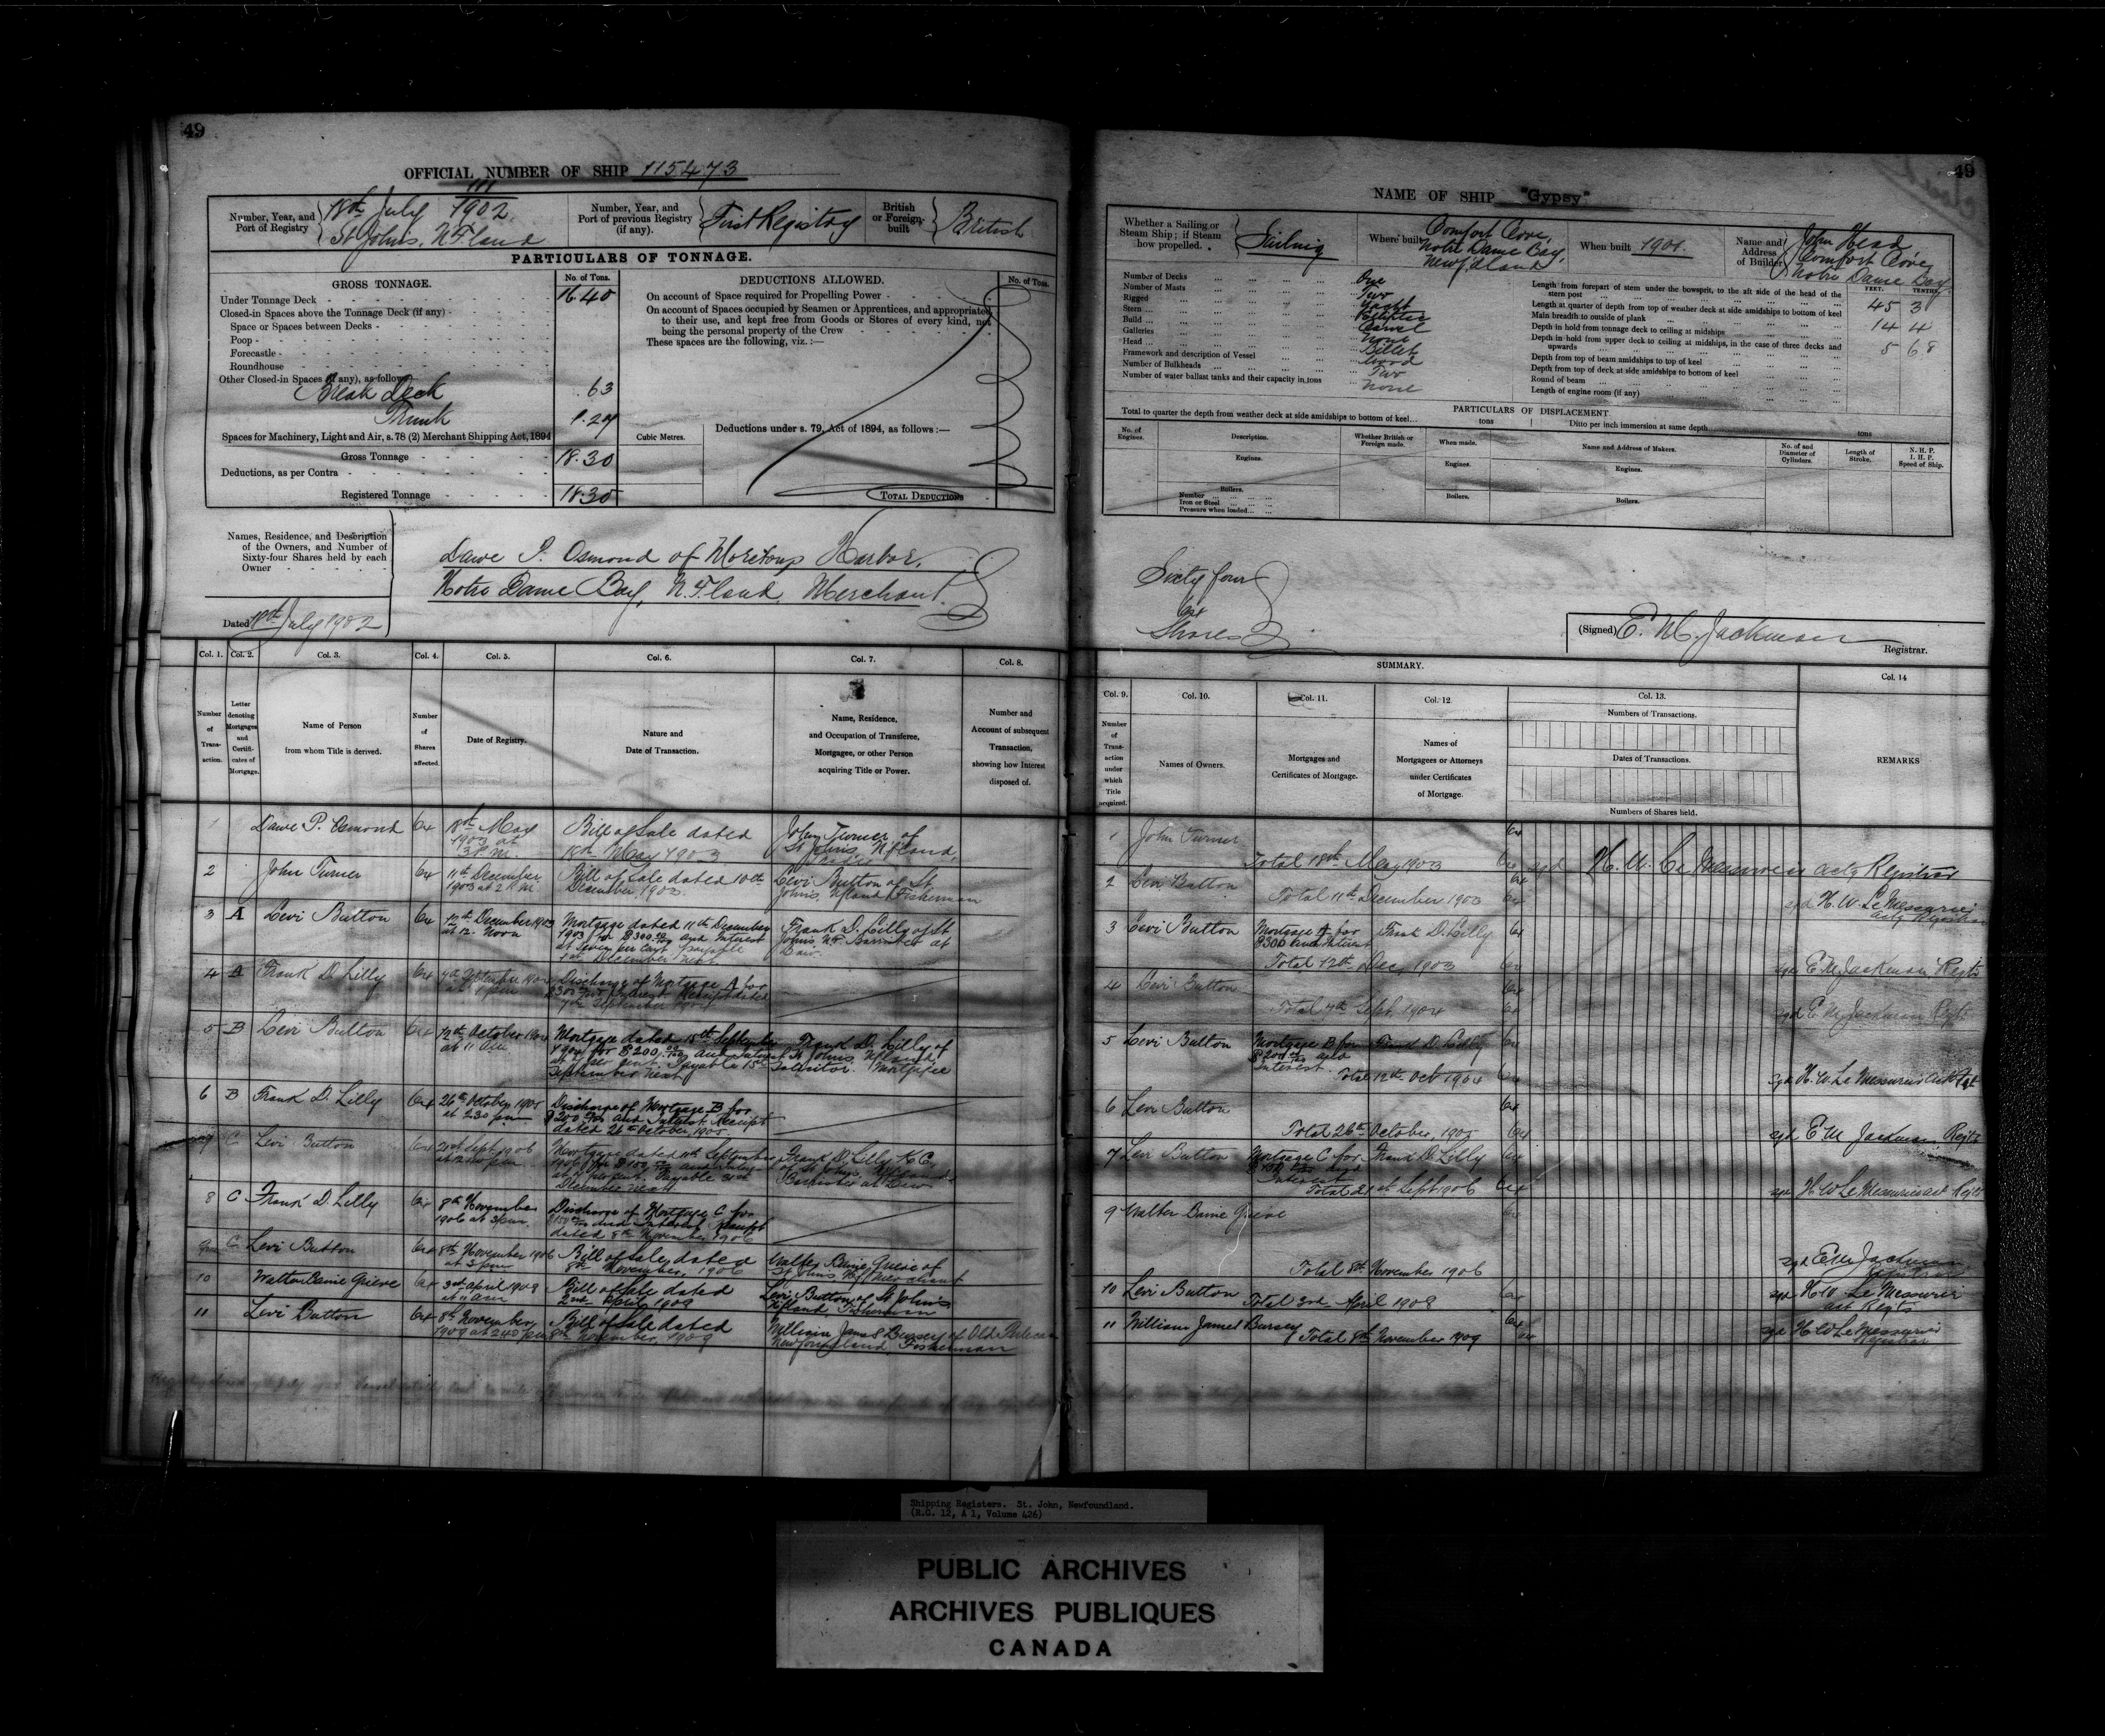 49
OFFICIAL NUMBER OF SHIP 115473
Number, Year, and Port of Registry
111
18th July 1902.
St John's, N.F.land
Number, Year, and Port of previous Registry (if any).
First Registry
British or Foreign-built
British
PARTICULARS OF TONNAGE.
GROSS TONNAGE.
No. of Tons.
Under Tonnage Deck 16.40
Closed-in Spaces above the Tonnage Deck (if any)
Space or Spaces between Decks
Poop
Forecastle
Roundhouse
Other Closed-in Spaces (if any), as follows
Break Deck .63
Trunk 1.27
Spaces for Machinery, Light and Air, s. 78 (2) Merchant Shipping Act, 1894
Gross Tonnage 18.30
Deductions, as per Contra
Registered Tonnage 18.30
Cubic Metres.
DEDUCTIONS ALLOWED.
No. of Tons.
On account of Space required for Propelling Power
On account of Spaces occupied by Seamen or Apprentices, and appropriated
to their use, and kept free from Goods or Stores of every kind, not
being the personal property of the Crew
These spaces are the following, viz. :—
Deductions under s. 79, Act of 1894, as follows :—
TOTAL DEDUCTIONS
Names, Residence, and Description
of the Owners, and Number of
Sixty-four Shares held by each
Owner
Dawe P. Osmond of Moretons Harbor,
Notre Dame Bay, N.F.land, Merchant.
Dated 18th July 1902
Col. 1. Col. 2. Col. 3. Col. 4. Col. 5. Col. 6. Col. 7. Col. 8.
Number of Transaction.
Letter denoting Mortgages and Certificates of Mortgage.
Name of Person from whom Title is derived.
Number of Shares affected.
Date of Registry.
Nature and Date of Transaction.
Name, Residence, and Occupation of Transferee, Mortgagee, or other Person acquiring Title or Power.
Number and Account of subsequent Transaction, showing how Interest disposed of.
1 Dawe P. Osmond 64 18th May 1903 at 3 P.M. Bill of Sale dated 18th May 1903 John Turner of St John's, Nfland,
2 John Turner 64 11th December 1903 at 2 P.M. Bill of Sale dated 10th December, 1903. Levi Button of St Johns, Nfland Fisherman
3 A Levi Button 64 12th December 1903 at 12. Noon Mortgage dated 11th December 1903 for $300 and Interest at seven per cent payable 1st December next Frank D. Lilly of St Johns N.F. Barrister at Law.
4 A Frank D. Lilly 64 7th September 1904 Discharge of Mortgage A for $300 and Interest Receipt dated 7th September 1904
5 B Levi Button 64 12th October 1904 at 11 am Mortgage dated 15th September 1904 for $200 and Interest at per cent Payable 15th September next Frank D. Lilly of St Johns Nfland, Solicitor. Mortgagee
6 B Frank D. Lilly 64 26th October 1905 at 2.30 pm Discharge of Mortgage B for $200 and Interest Receipt dated 26th October, 1905.
7 C Levi Button 64 21st Sept 1906 Mortgage dated 11th September 1906 for $150 and interest at per cent. Payable 31st December next. Frank D. Lilly K.C. of St John's Barrister at Law
8 C Frank D. Lilly 64 8th November 1906 at 3 pm. Discharge of Mortgage C for $150 and Interest Receipt dated 8th November 1906
9 Levi Button 64 8th November 1906 at 3 pm Bill of Sale dated 8th November, 1906 Walter Baine Grieve of St Johns Nf Merchant
10 Walter Baine Grieve 64 3rd April 1909 at 11 am Bill of Sale dated 2nd April 1909 Levi Button of St John's Nfland Fisherman
11 Levi Button 64 8th November 1909 at 2.40 pm Bill of Sale dated 8th November, 1909 William James Bursey of Old Perlican Newfoundland Fisherman
49
NAME OF SHIP "Gypsy"
Whether a Sailing or Steam Ship; if Steam how propelled.
Sailing
Where built
Comfort Cove, Notre Dame Bay, Newf'dland
When built 1901.
Name and Address of Builder
John Head
Comfort Cove
Notre Dame Bay
Number of Decks One
Number of Masts Two
Rigged Yacht
Stern
Build Carvel
Galleries None
Head Billet
Framework and description of Vessel Wood
Number of Bulkheads Two
Number of water ballast tanks and their capacity in tons None
FEET. TENTHS
Length from forepart of stem under the bowsprit, to the aft side of the head of the stern post 45 3
Length at quarter of depth from top of weather deck at side amidships to bottom of keel
Main breadth to outside of plank 14 4
Depth in hold from tonnage deck to ceiling at midships 5 68
Depth in hold from upper deck to ceiling at midships, in the case of three decks and upwards
Depth from top of beam amidships to top of keel
Depth from top of deck at side amidships to bottom of keel
Round of beam
Length of engine room (if any)
PARTICULARS OF DISPLACEMENT
Total to quarter the depth from weather deck at side amidships to bottom of keel... tons
Ditto per inch immersion at same depth tons
No. of Engines.
Description.
Whether British or Foreign made.
When made.
Name and Address of Makers.
No. of and Diameter of Cylinders.
Length of Stroke.
N. H. P.
I. H. P.
Speed of Ship.
Engines. Engines. Engines.
Boilers.
Number
Iron or Steel
Pressure when loaded
Boilers. Boilers.
Sixty four
64
Shares
(Signed) E. M. Jackman
Registrar.
SUMMARY.
Col. 9. Col. 10. Col. 11. Col. 12. Col. 13. Col. 14
Number of Transaction under which Title acquired.
Names of Owners.
Mortgages and Certificates of Mortgage.
Names of Mortgagees or Attorneys under Certificates of Mortgage.
Numbers of Transactions.
Dates of Transactions.
Numbers of Shares held.
REMARKS
1 John Turner 64
Total 18th May 1903 64 sgd H. W. Le Messurier actg Registrar
2 Levi Button 64
Total 11th December 1903 64 sgd H. W. Le Messurier actg Registrar
3 Levi Button Mortgage A for $300 and Interest Frank D. Lilly 64
Total 12th Dec, 1903 64 sgd E M Jackman Regtr
4 Levi Button 64
Total 7th Sept, 1904 64 sgd E M Jackman Regtr
5 Levi Button Mortgage B for $200 and Interest Frank D. Lilly 64
Total 12th Oct 1904 64 sgd H. W. Le Messurier
6 Levi Button 64
Total 26th October, 1905 64 sgd E M Jackman Regtr
7 Levi Button Mortgage C for $150 and Interest Frank D Lilly 64
Total 21st Sept 1906 64 sgd H W Le Messurier act Regtr
9 Walter Baine Grieve 64
Total 8th November 1906 sgd E M Jackman Registrar
10 Levi Button 64
Total 3rd April 1909 sgd H W Le Messurier act Regtr
11 William James Bursey 64
Total 8th November 1909 64 sgd H W Le Messurier Registrar
Shipping Registers. St. John, Newfoundland.
(R.G. 12, A 1, Volume 426)
PUBLIC ARCHIVES
ARCHIVES PUBLIQUES
CANADA